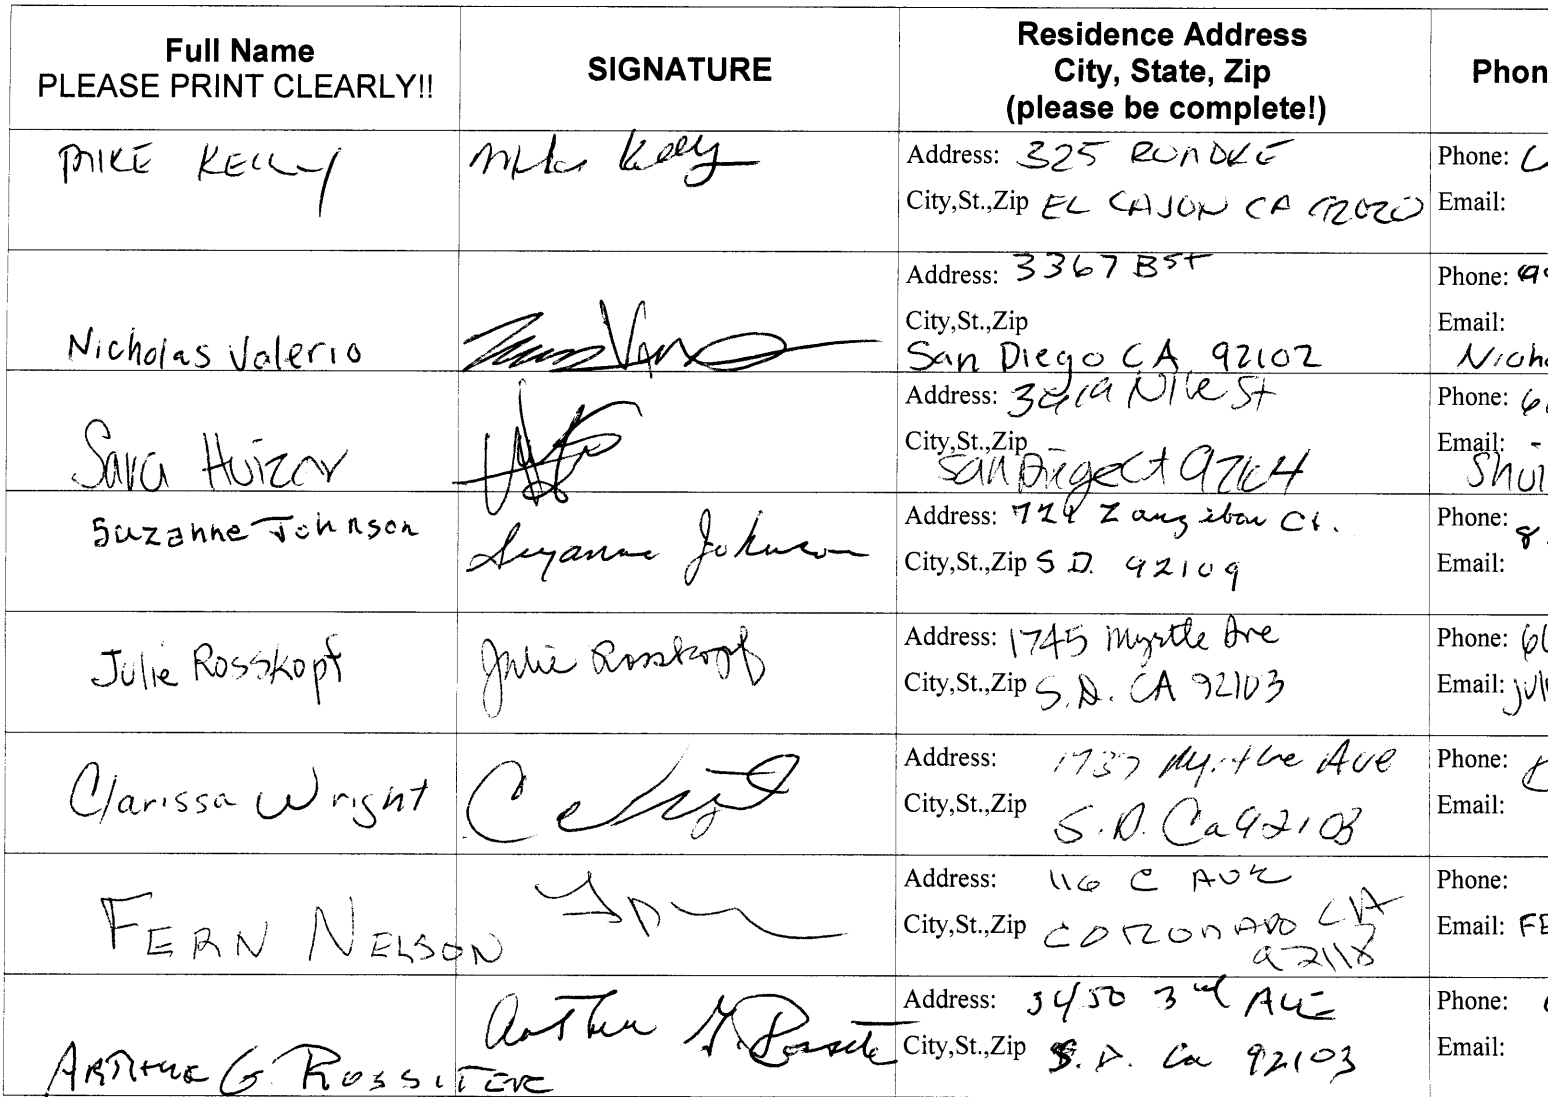 Full Name
PLEASE PRINT CLEARLY!!
SIGNATURE
Residence Address
City, State, Zip
(please be complete!)
Phon
MIKE KELLY
Mike Kelly
Address: 325 RONDKE
City,St.,Zip EL CAJON CA 92020
Phone:
Email:
Nicholas Valerio
Address: 3367 B St
City,St.,Zip
San Diego CA 92102
Phone:
Email:
Nicho
Sara Huizar
Address: Nile St
City,St.,Zip
San Diego 92104
Phone: 6
Email:
Shui
Suzanne Johnson
Suzanne Johnson
Address: 724 Zanzibar Ct.
City,St.,Zip S D. 92109
Phone: 8
Email:
Julie Rosskopf
Julie Rosskopf
Address: 1745 Myrtle Ave
City,St.,Zip S.D. CA 92103
Phone: 6
Email: juli
Clarissa Wright
Address: 1737 Myrtle Ave
City,St.,Zip S.D. Ca 92103
Phone:
Email:
FERN NELSON
Address: 116 C AVE
City,St.,Zip CORONADO CA
92118
Phone:
Email: FE
ARTHUR G. ROSSITER
Arthur G. Rossiter
Address: 3450 3rd AVE
City,St.,Zip S.D. Ca 92103
Phone:
Email: